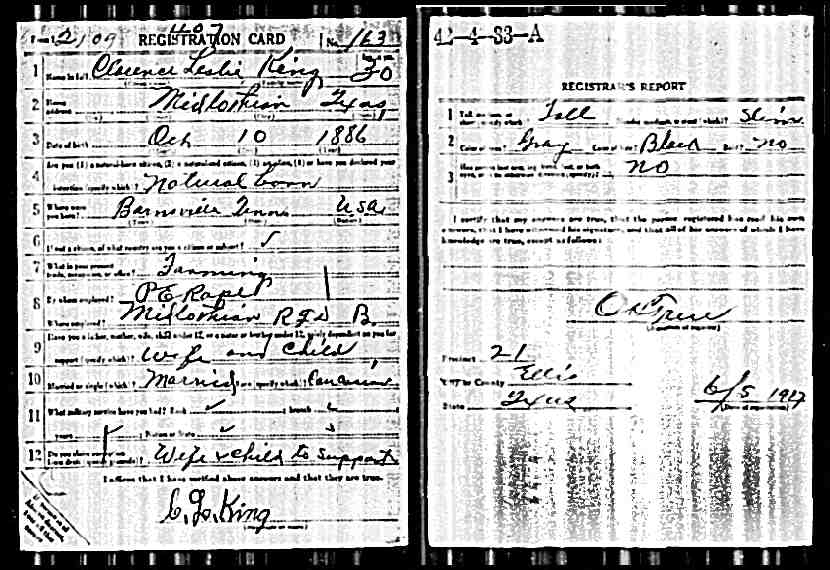 407
REGISTRATION CARD No. 163
1 Name in full Clarence Leslie King 30
2 Home address Midlothian Texas
3 Date of birth Oct 10 1886
4 Are you (1) a natural-born citizen, (2) a naturalized citizen, (3) an alien, (4) or have you declared your
intention (specify which)? Natural born
5 Where were you born? Tenn USA
6 If not a citizen, of what country are you a citizen or subject? ✓
7 What is your present trade, occupation, or office? Farming
8 By whom employed?
Where employed? Midlothian RFD
9 Have you a father, mother, wife, child under 12, or a sister or brother under 12, solely dependent on you for
support (specify which)? Wife and child
10 Married or single (which)? Married Race (specify which)? Caucasian
11 What military service have you had? Rank ✓ branch ✓
years ✓ Nation or State ✓
12 Do you claim exemption from draft (specify grounds)? Wife & child to support
I affirm that I have verified above answers and that they are true.
C. L. King
42-4-33-A
REGISTRAR'S REPORT
1 Tall, medium, or short (specify which)? Tall Slender, medium, or stout (which)? Slim
2 Color of eyes? Gray Color of hair? Black Bald? No
3 Has person lost arm, leg, hand, foot, or both eyes, or is he otherwise disabled (specify)? No
I certify that my answers are true, that the person registered has read his own
answers, that I have witnessed his signature, and that all of his answers of which I have
knowledge are true, except as follows:
(Signature of registrar)
Precinct 21
City or County Ellis
State Texas 6/5 1917
(Date of registration)